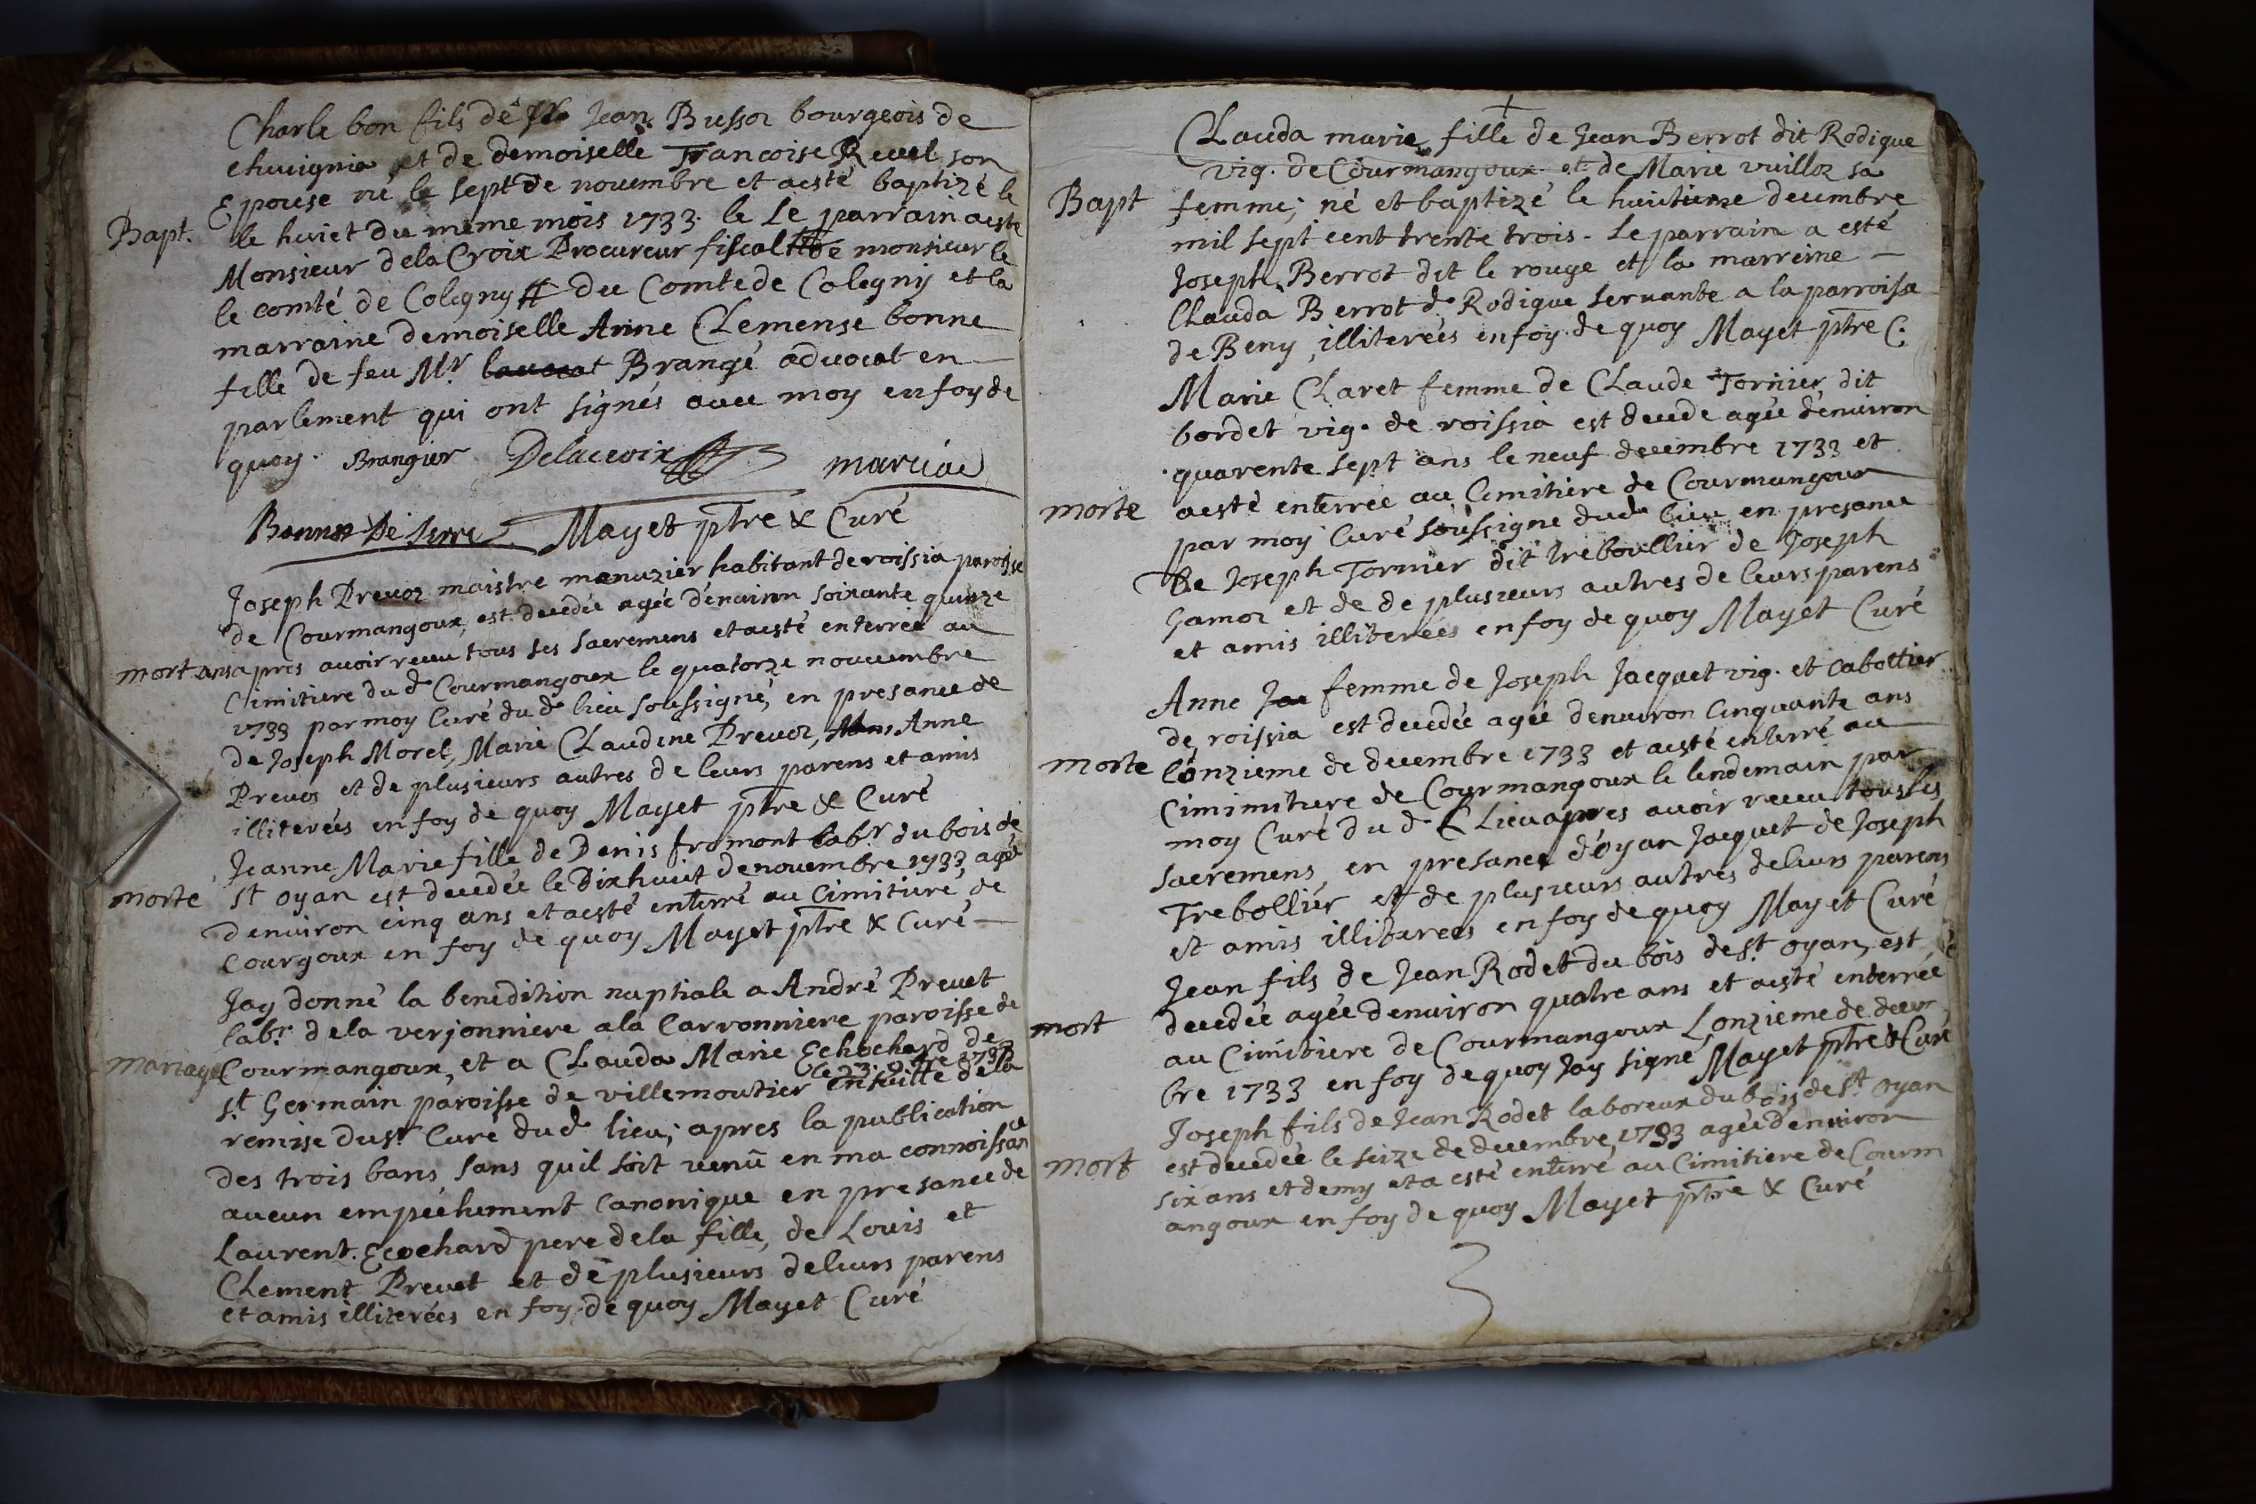 Charle bon fils de Jean Bussoz bourgeois de
chuvignia et de demoiselle Francoise Revel son
Epouse né le sept de novembre et aesté baptizé le
Bapt. le huict du meme mois 1733. le Le parrain aesté
Monsieur dela Croix Procureur fiscal de monsieur le
le comté de Colegny du Comte de Colegny et la
marraine demoiselle Anne Clemense bonne
fille de feu Mr. lavocat Brangé advocat en
parlement qui ont signés avec moy en foy de
quoy. Brangier Delacroix
Mayet ptre & Curé
Joseph Prevoz maistre menuzier habitant de roissia paroisse
de Courmangoux, est decedée agée d'environ soixante quinze
mort ans apres avoir receu tous ses sacremens et aesté enterrée au
Cimitiere du d. Courmangoux le quatorze novembre
1733 par moy Curé du d. lieu soussigné, en presance de
de Joseph Morel, Marie Claudine Prevoz, Anne
Prevoz et de plusieurs autres de leurs parens et amis
illiterées en foy de quoy Mayet ptre & Curé
Jeanne Marie fille de Denis fromont labr. du bois de
morte st oyan est decedée le Dixhuict de novembre 1733 agé
denviron cinq ans et aesté enterré au Cimitiere de
Courgoux en foy de quoy Mayet ptre & Curé
Jay donné la benedition nuptiale a André Prevet
labr. dela verjonniere a la Carronniere paroisse de
mariage Courmangoux, et a Clauda Marie Echochard de
st. Germain paroisse de villemoutier ensuitte dela
remise du sr. Curé du d. lieu; apres la publication
des trois bans sans quil soit venū en ma connoissan
aucun empéchement Canonique en presance de
Laurent Ecochard pere dela fille, de Louis et
Clement Prevet et de plusieurs de leurs parens
et amis illiterées en foy de quoy Mayet Curé
Clauda marie fille de Jean Berrot dit Rodique
vig. de Courmangoux et de Marie vuilloz sa
Bapt femme; né et baptizé le huictieme decembre
mil sept cent trente trois. Le parrain a esté
Joseph Berrot dit le rouge et la marreine
Clauda Berrot d. Rodique servante a la parroisse
de Beny, illiterées en foy de quoy Mayet ptre C.
Marie Claret femme de Claude Tornier dit
bordet vig. de roissia est decede agée d'environ
quarente sept ans le neuf decembre 1733 et
morte aesté enterrée au Cimitiere de Courmangoux
par moy Curé soussigne dud. lieu en presance
de Joseph Tornier dit treboullier de Joseph
Gamoz et de de plusieurs autres de leurs parens
et amis illiterées en foy de quoy Mayet Curé
Anne femme de Joseph Jacquet vig. et cabottier
de roissia est decedée agée denviron Cinquante ans
morte l'onzieme de decembre 1733 et aesté enterré au
Cimimitiere de Courmangoux le lendemain par
moy Curé du d. Lieu apres avoir receu tous ses
sacremens, en presance d'oyan Jacquet de Joseph
Trebollier et de plusieurs autres de leurs parens
et amis illiterees en foy de quoy Mayet Curé
Jean fils de Jean Rodet du bois de st. oyan, est
decedée agée denviron quatre ans et aesté enterrée
mort au Cimitiere de Courmangoux Lonzieme de decem
bre 1733 en foy de quoy Jay signé Mayet ptre & Curé
Joseph fils de Jean Rodet laboreur du bois de st. oyan
mort est decedée le seize de decembre 1733 agée denviron
six ans et demy et a esté enterré au Cimitiere de Courm
angoux en foy de quoy Mayet ptre & Curé